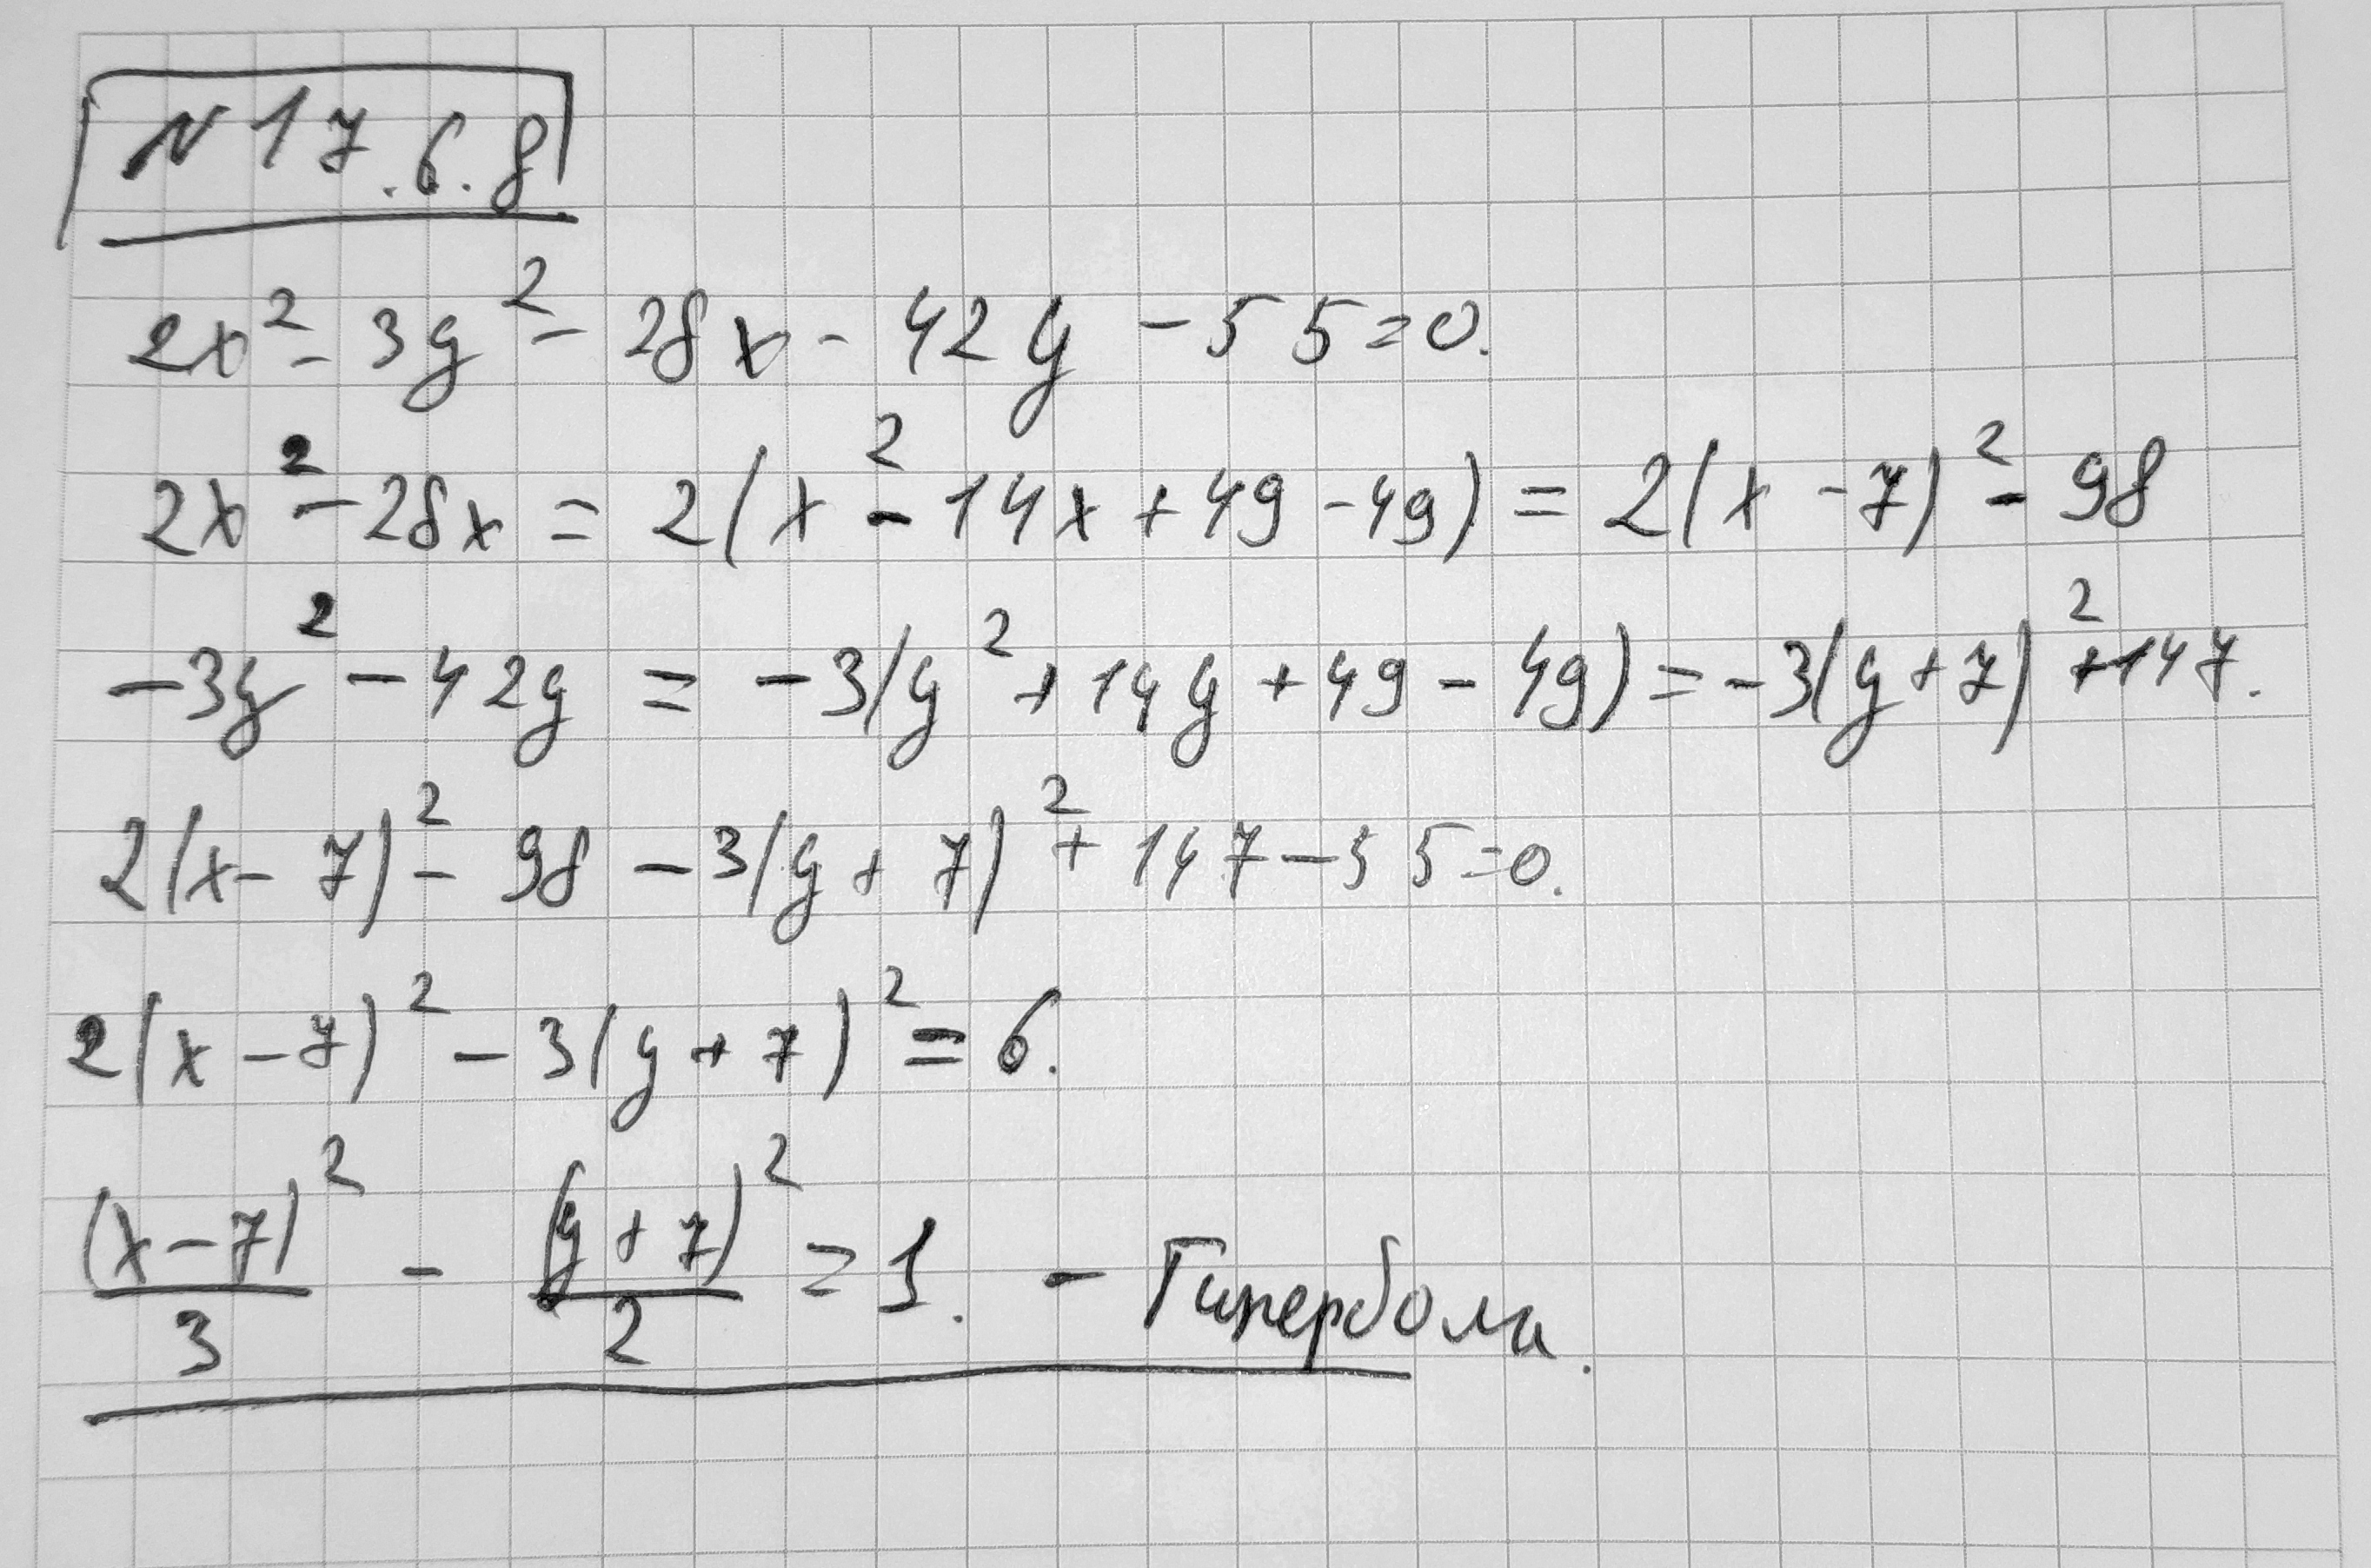 N 17.6.8
2x² - 3y² - 28x - 42y - 55 = 0.
2x² - 28x = 2(x² - 14x + 49 - 49) = 2(x - 7)² - 98
-3y² - 42y = -3(y² + 14y + 49 - 49) = -3(y + 7)² + 147.
2(x - 7)² - 98 - 3(y + 7)² + 147 - 55 = 0.
2(x - 7)² - 3(y + 7)² = 6.
(x - 7)²/3 - (y + 7)²/2 = 1. - Гипербола.